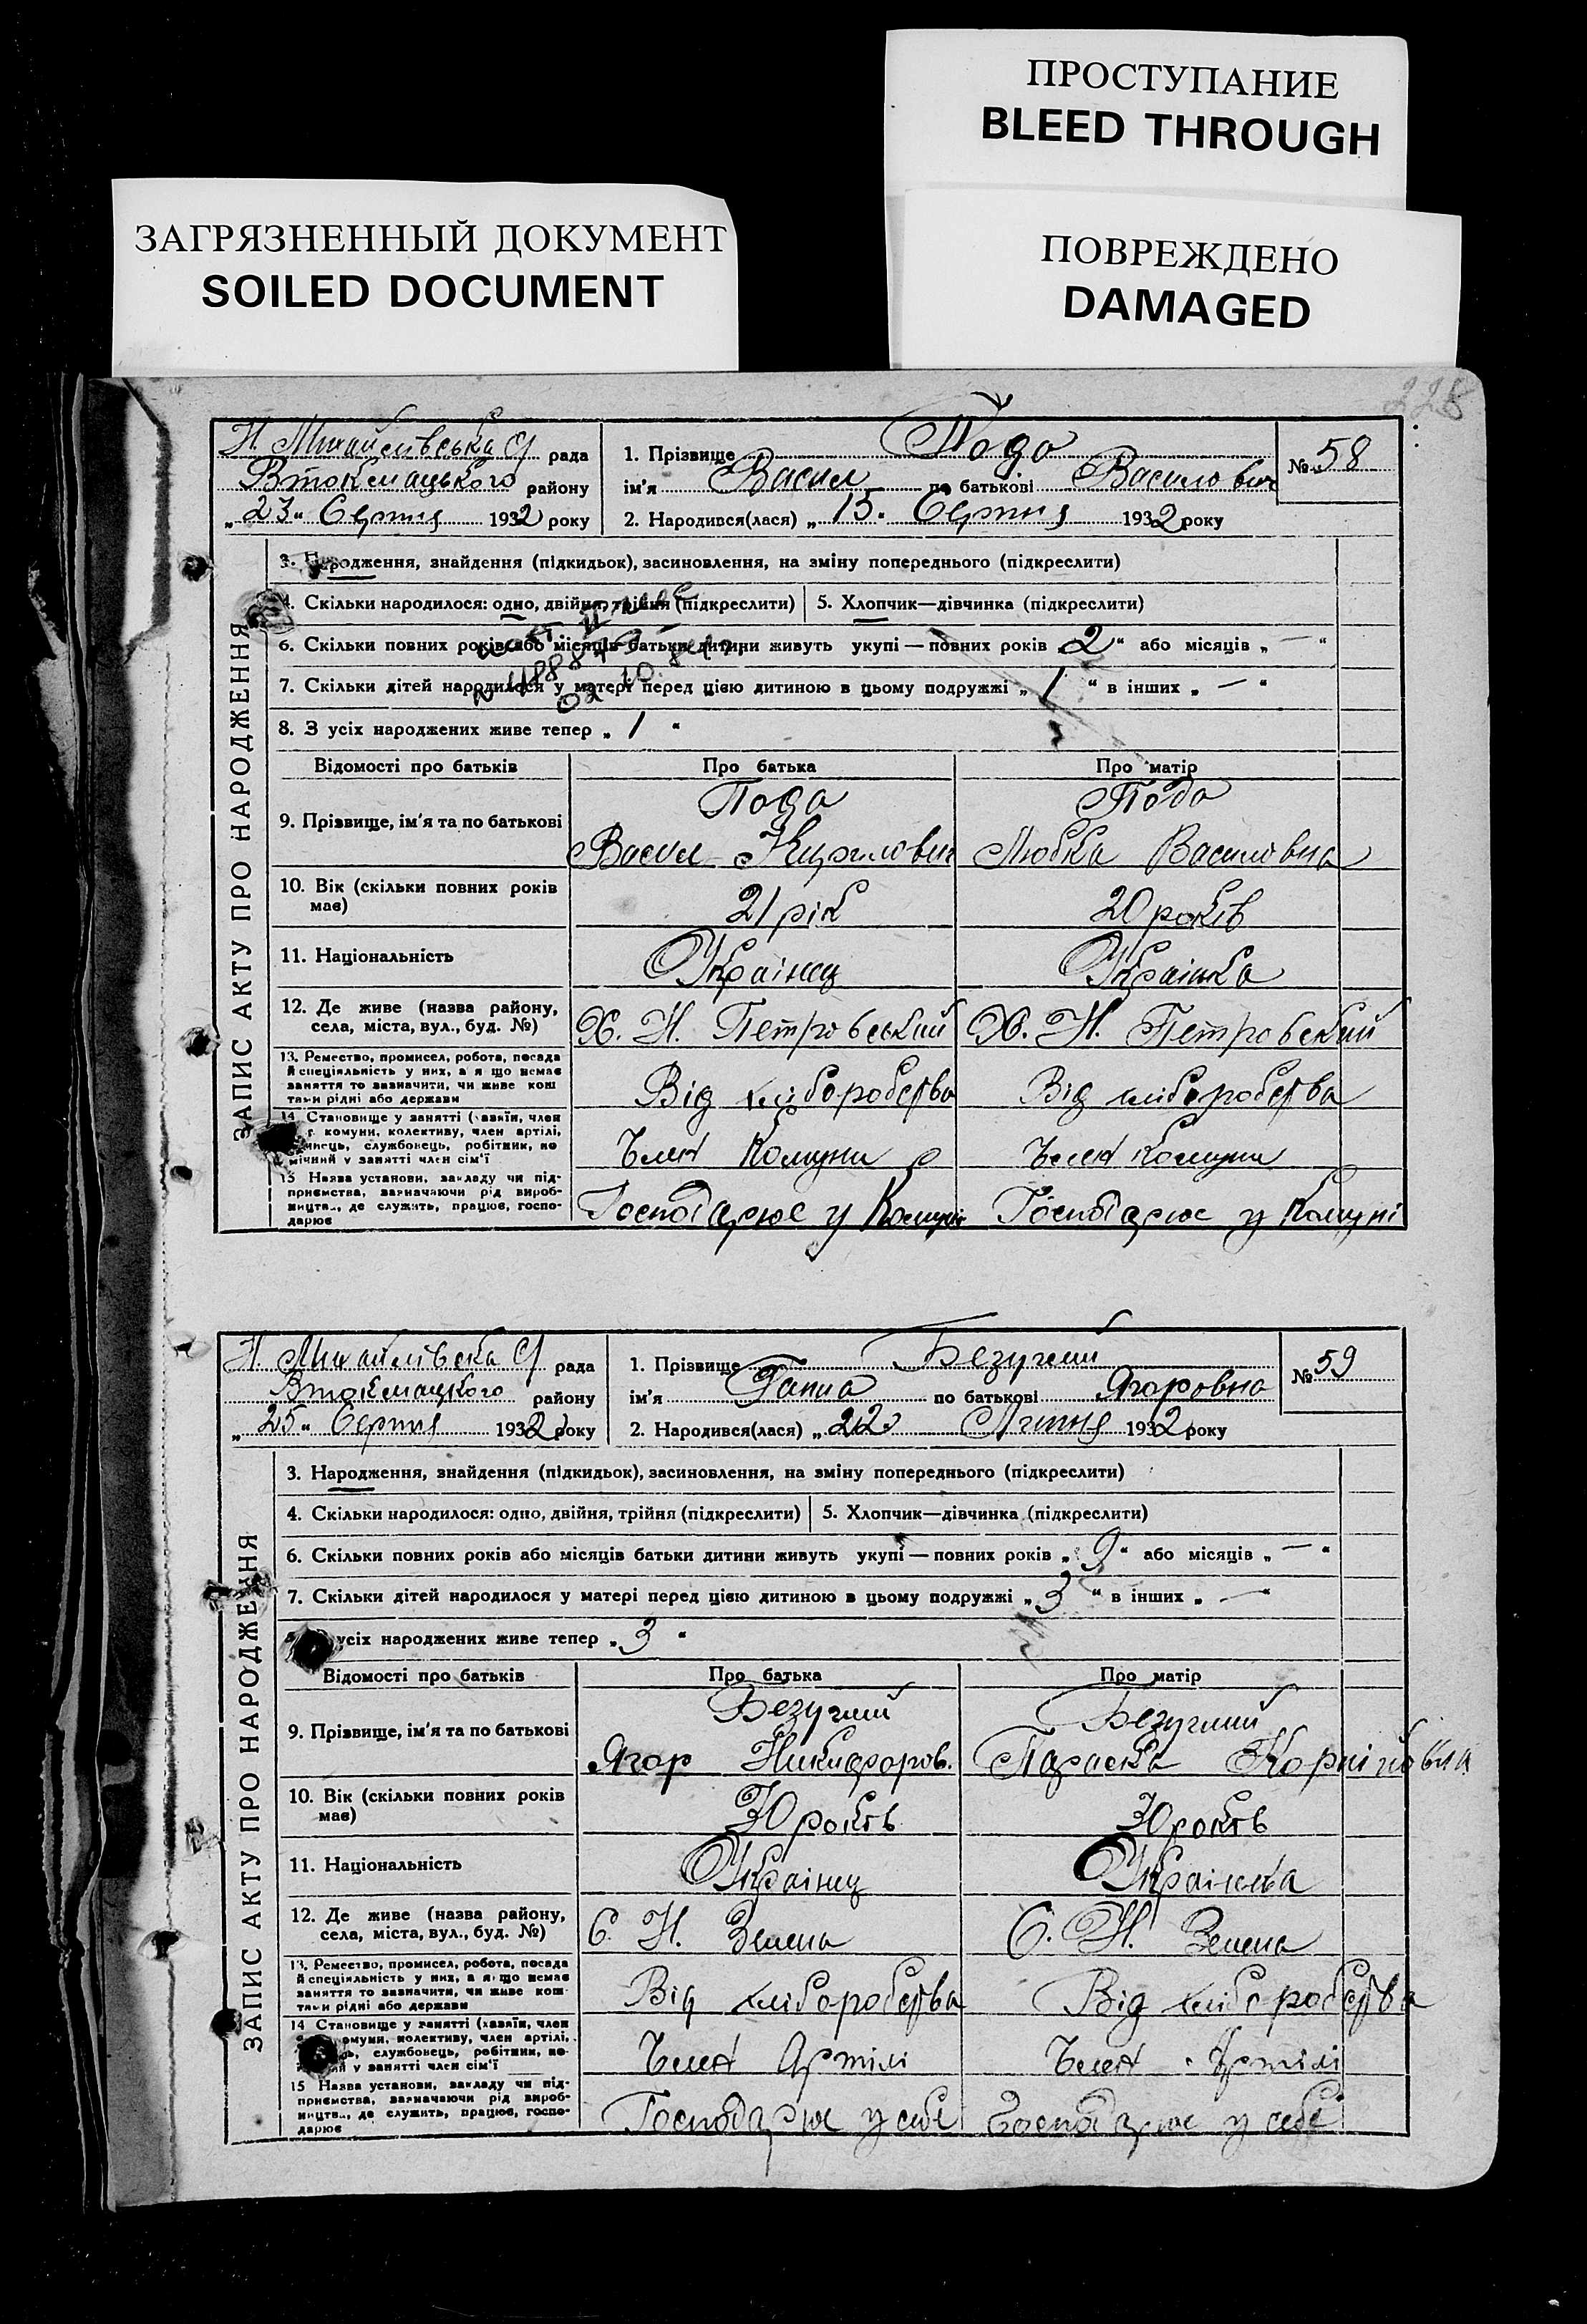 ПРОСТУПАНИЕ
BLEED THROUGH
ЗАГРЯЗНЕННЫЙ ДОКУМЕНТ
SOILED DOCUMENT
ПОВРЕЖДЕНО
DAMAGED
228
Н. Михайлівська С/ рада
Втокмацького району
„23“ Серпня 1932 року
1. Прізвище Пода
ім'я Васил по батькові Василович
2. Народився(лася) „15. Серпня 1932 року
№ 58
ЗАПИС АКТУ ПРО НАРОДЖЕННЯ
3. Народження, знайдення (підкидьок), засиновлення, на зміну попереднього (підкреслити)
4. Скільки народилося: одно, двійня, трійня (підкреслити) 5. Хлопчик—дівчинка (підкреслити)
6. Скільки повних років або місяців батьки дитини живуть укупі — повних років „2“ або місяців „—“
7. Скільки дітей народилося у матері перед цією дитиною в цьому подружжі „1“ в інших „—“
8. З усіх народжених живе тепер „1“
Відомості про батьків Про батька Про матір
9. Прізвище, ім'я та по батькові
Пода Пода
Васил Кирилович Любка Василовна
10. Вік (скільки повних років має)
21 рік 20 років
11. Національність
Українец Українка
12. Де живе (назва району, села, міста, вул., буд. №)
Х. Н. Петровський Х. Н. Петровский
13. Ремество, промисел, робота, посада й спеціяльність у них, а якщо немає заняття то зазначити, чи живе коштами рідні або держави
Від хліборобства Від хліборобства
14. Становище у занятті (хазяїн, член комуни, колективу, член артілі, службовець, робітник, помічний у занятті член сім'ї
Член Комуни Член Комуни
15 Назва установи, закладу чи підприємства, зазначаючи рід виробництва, де служить, працює, господарює
Господарює у Комуні Господарює у Комуні
Н. Михайлівська С/ рада
Втокмацкого району
„25“ Серпня 1932 року
1. Прізвище Безуглий
ім'я Ганна по батькові Ягоровна
2. Народився(лася) „22 Липня 1932 року
№ 59
ЗАПИС АКТУ ПРО НАРОДЖЕННЯ
3. Народження, знайдення (підкидьок), засиновлення, на зміну попереднього (підкреслити)
4. Скільки народилося: одно, двійня, трійня (підкреслити) 5. Хлопчик—дівчинка (підкреслити)
6. Скільки повних років або місяців батьки дитини живуть укупі — повних років „9“ або місяців „—“
7. Скільки дітей народилося у матері перед цією дитиною в цьому подружжі „3“ в інших „—“
усіх народжених живе тепер „3“
Відомості про батьків Про батька Про матір
9. Прізвище, ім'я та по батькові
Безуглий Безуглий
Ягор Никифоров. Параска Корніловна
10. Вік (скільки повних років має)
30 років 30 років
11. Національність
Українец Українка
12. Де живе (назва району, села, міста, вул., буд. №)
С. Н. Зелена С. Н. Зелена
13. Ремество, промисел, робота, посада й спеціяльність у них, а якщо немає заняття то зазначити, чи живе коштами рідні або держави
Від хліборобства Від хліборобства
14 Становище у занятті (хазяїн, член комуни, колективу, член артілі, службовець, робітник, помічний у занятті член сім'ї
Член Артілі Член Артілі
15 Назва установи, закладу чи підприємства, зазначаючи рід виробництва, де служить, працює, господарює
Господарює у себе Господарює у себе